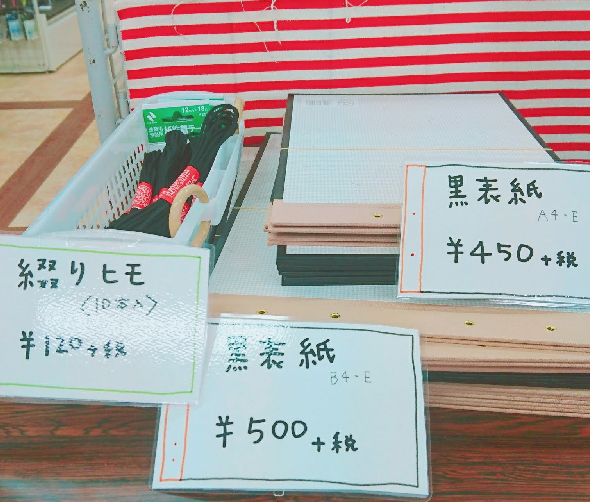 黒表紙
A4-E
¥450+税
綴りヒモ
(10本入)
¥120+税
黒表紙
B4-E
¥500+税